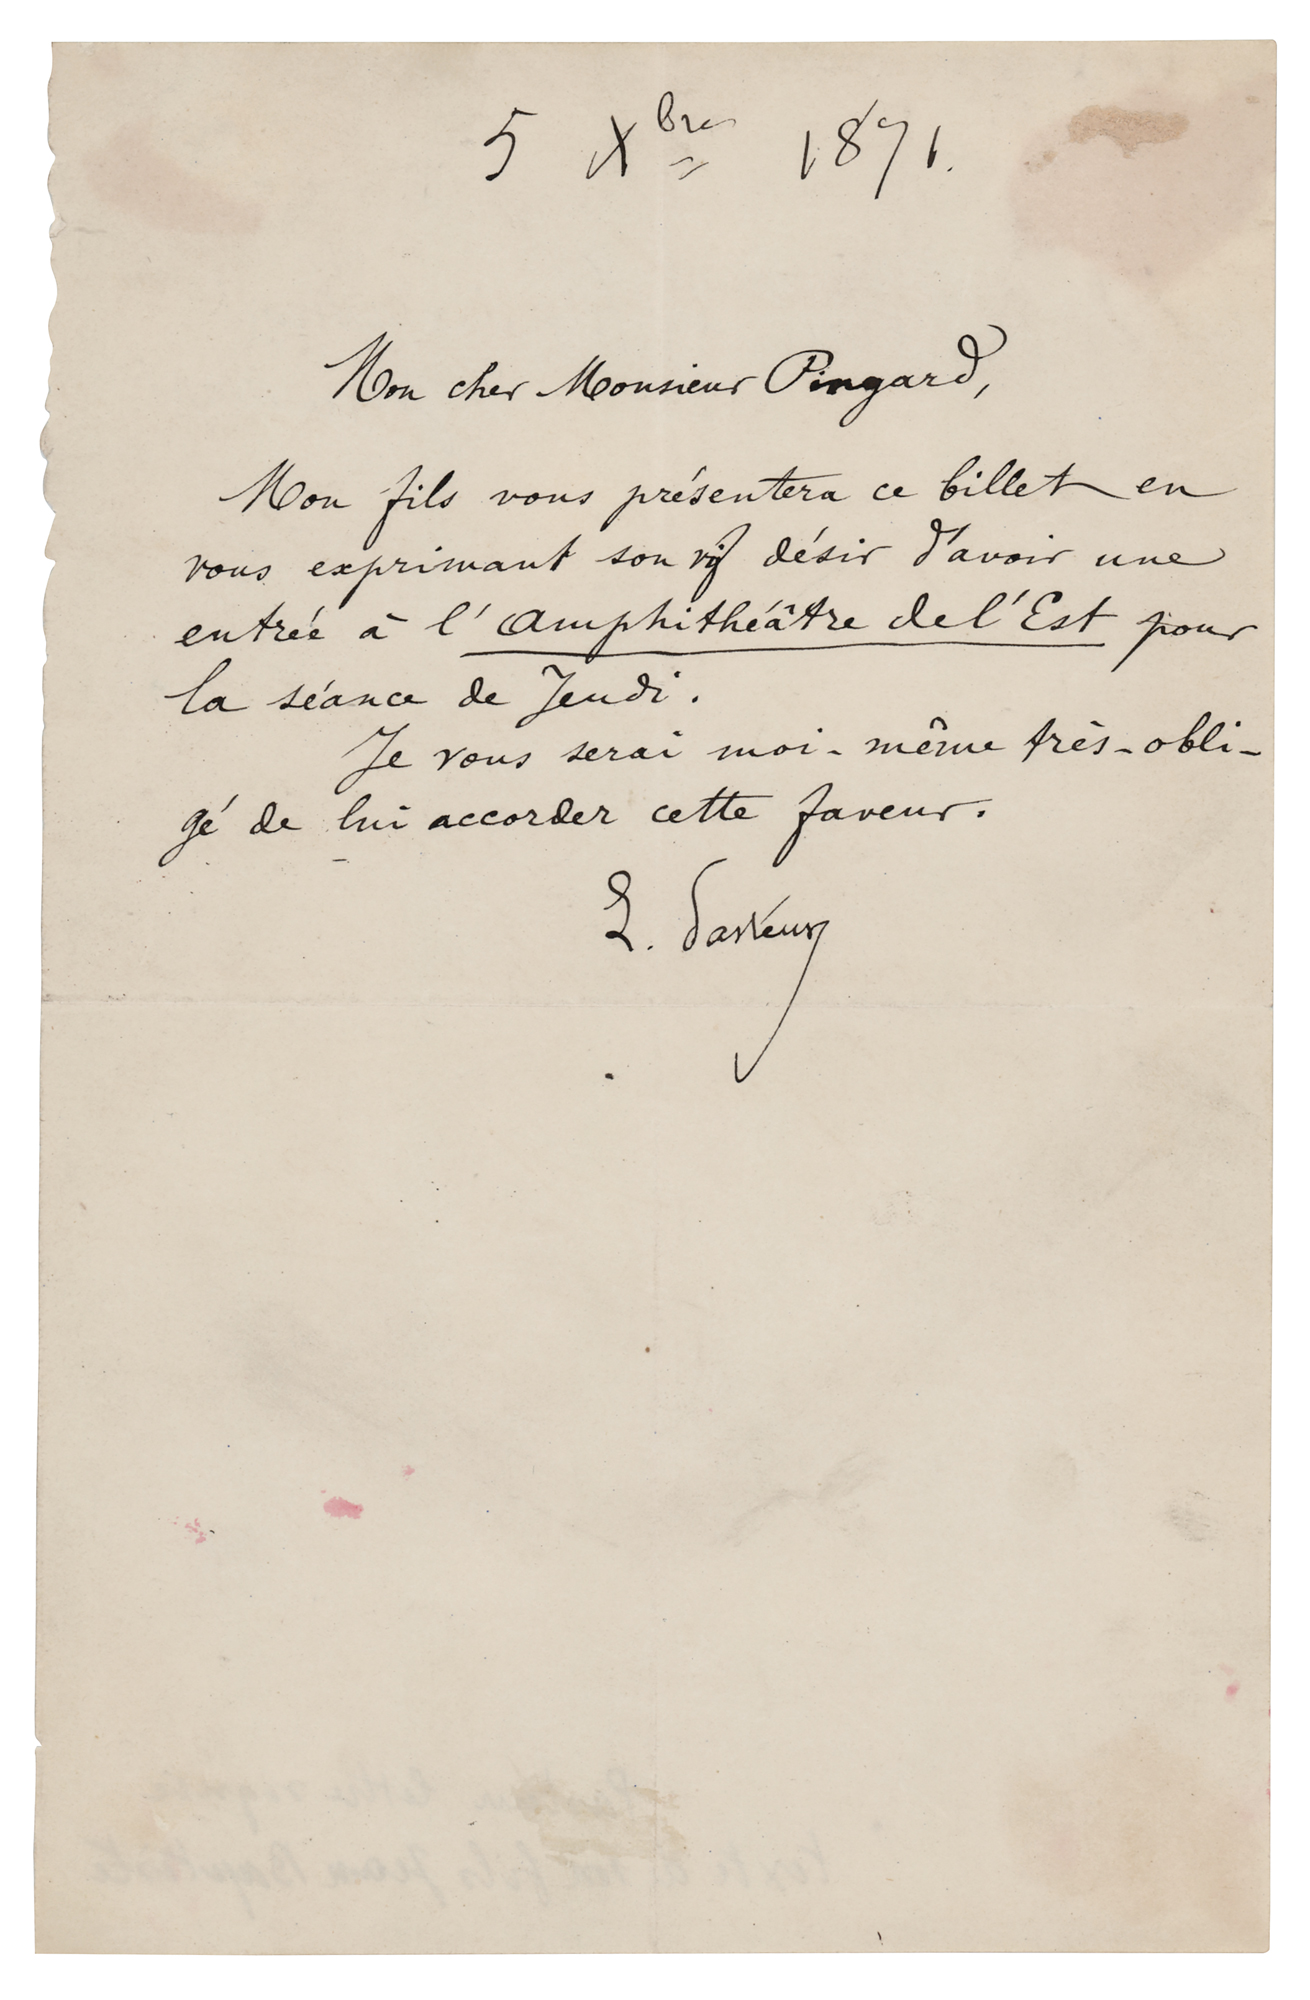 5 Xbre 1871.
Mon cher Monsieur Pingard,
Mon fils vous présentera ce billet en
vous exprimant son vif désir d'avoir une
entrée à l'Amphithéâtre de l'Est pour
la séance de Jeudi.
Je vous serai moi-même très-obli-
gé de lui accorder cette faveur.
L. Pasteur